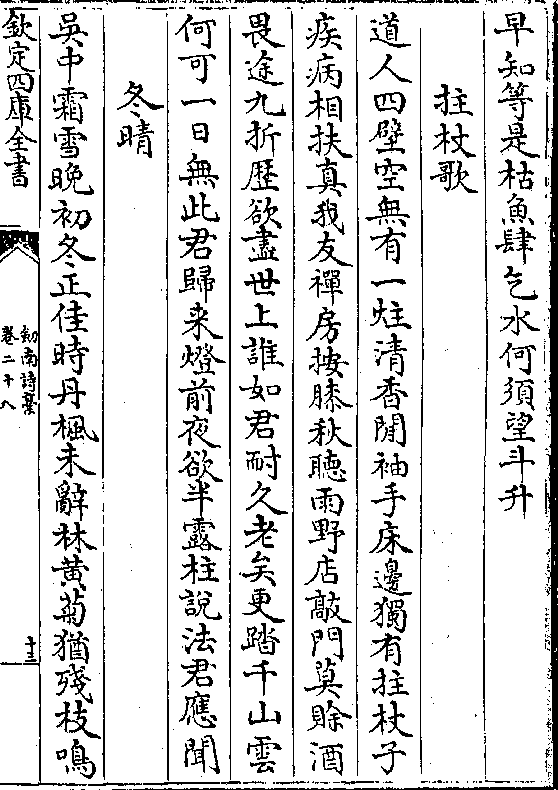 早知等是枯魚肆乞水何須望斗升
拄杖歌
道人四壁空無有一炷清香閒袖手床邊獨有拄杖子
疾病相扶真我友禪房按膝秋聽雨野店敲門莫賒酒
畏途九折歴欲盡世上誰如君耐久老矣更踏千山雲
何可一日無此君歸来燈前夜欲半露柱說法君應聞
冬晴
吳中霜雪晚初冬正佳時丹楓未辭林黄菊猶殘枝鳴
欽定四庫全書
劍南詩藁
卷二十八
十三